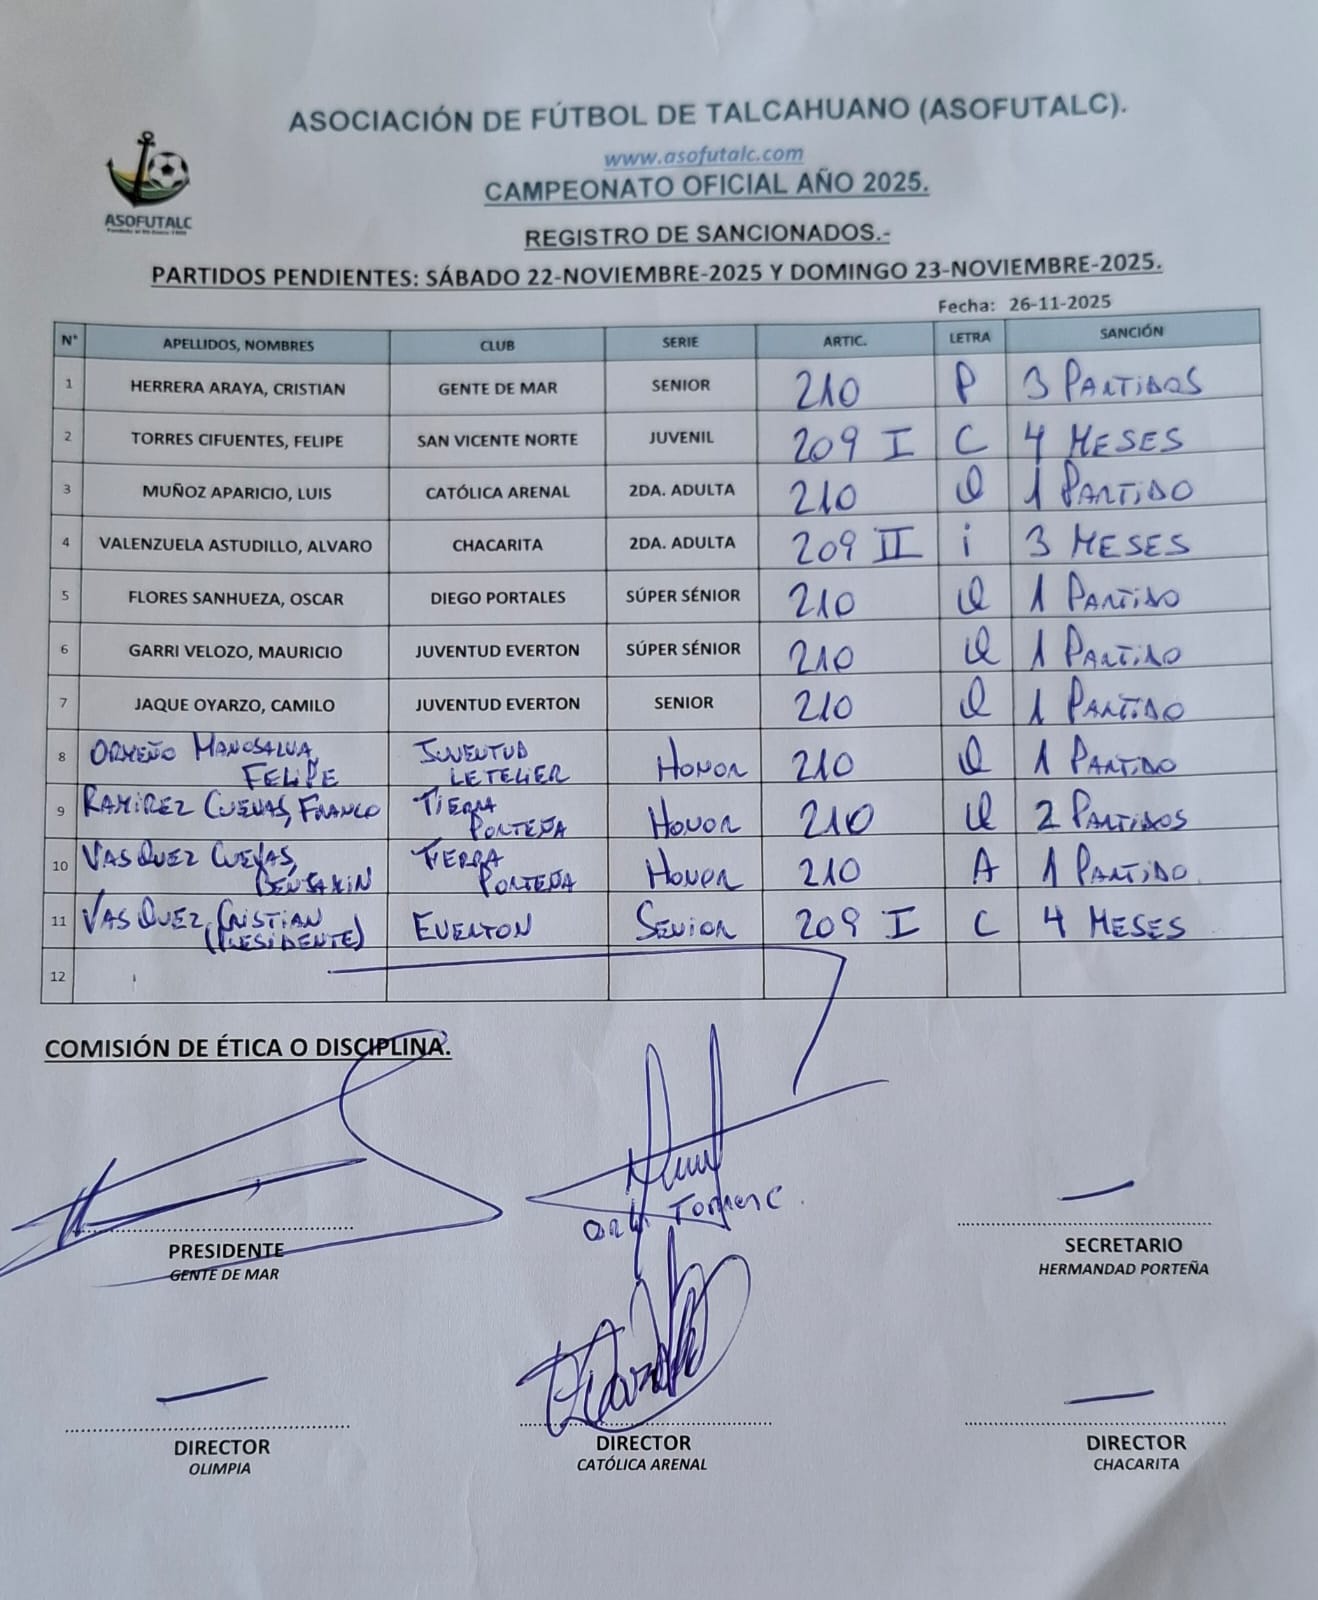 ASOCIACIÓN DE FÚTBOL DE TALCAHUANO (ASOFUTALC).
www.asofutalc.com
CAMPEONATO OFICIAL AÑO 2025.
ASOFUTALC
REGISTRO DE SANCIONADOS.-
PARTIDOS PENDIENTES: SÁBADO 22-NOVIEMBRE-2025 Y DOMINGO 23-NOVIEMBRE-2025.
Fecha: 26-11-2025
N° APELLIDOS, NOMBRES CLUB SERIE ARTIC. LETRA SANCIÓN
1 HERRERA ARAYA, CRISTIAN GENTE DE MAR SENIOR 210 P 3 PARTIDOS
2 TORRES CIFUENTES, FELIPE SAN VICENTE NORTE JUVENIL 209 I C 4 MESES
3 MUÑOZ APARICIO, LUIS CATÓLICA ARENAL 2DA. ADULTA 210 Q 1 PARTIDO
4 VALENZUELA ASTUDILLO, ALVARO CHACARITA 2DA. ADULTA 209 II i 3 MESES
5 FLORES SANHUEZA, OSCAR DIEGO PORTALES SÚPER SÉNIOR 210 Q 1 PARTIDO
6 GARRI VELOZO, MAURICIO JUVENTUD EVERTON SÚPER SÉNIOR 210 Q 1 PARTIDO
7 JAQUE OYARZO, CAMILO JUVENTUD EVERTON SENIOR 210 Q 1 PARTIDO
8 ORMEÑO MANOSALVA FELIPE JUVENTUD LETELIER HONOR 210 Q 1 PARTIDO
9 RAMIREZ CUEVAS, FRANCO TIERRA PORTEÑA HONOR 210 Q 2 PARTIDOS
10 VASQUEZ CUEVAS, BENJAMIN TIERRA PORTEÑA HONOR 210 A 1 PARTIDO
11 VASQUEZ, CRISTIAN (PRESIDENTE) EVERTON SENIOR 209 I C 4 MESES
12
COMISIÓN DE ÉTICA O DISCIPLINA.
PRESIDENTE
GENTE DE MAR
SECRETARIO
HERMANDAD PORTEÑA
DIRECTOR
OLIMPIA
DIRECTOR
CATÓLICA ARENAL
DIRECTOR
CHACARITA